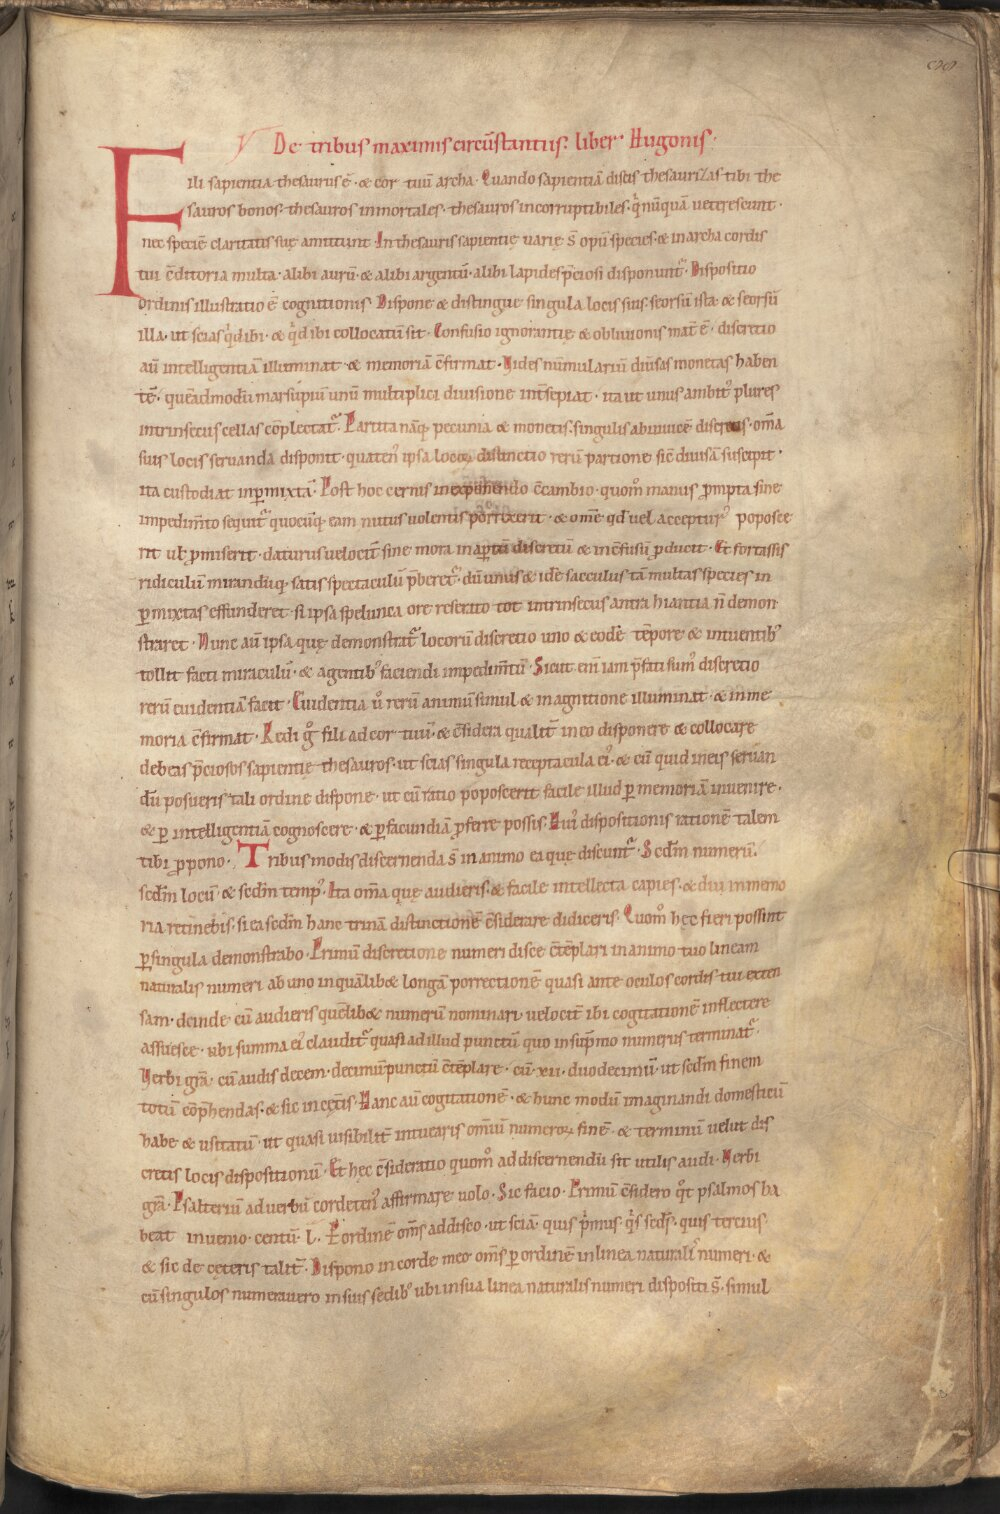 De tribus maximis circūstantiis· liber Hugonis·
Fili sapientia thesaurus ē· & cor tuū archa· Quando sapientiā discis thesaurizas tibi the
sauros bonos· thesauros inmortales· thesauros incorruptibiles· q̄ nūquā veterescunt·
nec speciē claritatis suę amittunt· In thesauris sapientię varię s̄ opū species· & in archa cordis
tui c̄ditoria multa· alibi aurū· & alibi argentū· alibi lapides p̄ciosi disponunt᷑· Dispositio
ordinis illustratio ē cognitionis· Dispone & distingue singula locis suis· seorsū ista· & seorsū
illa· ut scias qͥd ibi· & qͥd ibi collocatū sit· Confusio ignorantię & oblivionis mat̄ ē· discretio
aū intelligentiā illuminat· & memoriā c̄firmat· Vides nūmulariū diūsas monetas haben
tē· quēadmodū marsupiū unū multiplici divisione int̄sepiat· ita ut unus ambit᷒ plures
intrinsecus cellas cōplectat᷑· Partita nāq; pecunia & monetis singulis abinvicē discretis· om̄a
suis locis servanda disponit· quaten᷒ ipsa locoꝝ distinctio rerū partione sic̄ divisā suscipit·
ita custodiat inꝑmixtā· Post hoc cernis in exponendo c̄cambio· quom̊ manus ꝓmpta sine
impedim̄to sequit᷑ quocūq; eam nutus volentis porrixerit· & om̄e qd vel acceptur᷒ poposce
rit ul̄ ꝓmiserit· daturus velocit̄ sine mora in aꝑtū discretū & inc̄fusū ꝓducit· Et fortassis
ridiculū mirandūq; satis spectaculū p̄beret᷑· dū unus & idē sacculus tā multas species in
ꝑmixtas effunderet· si ipsa spelunca ore reserato tot intrinsecus antra hiantia n̄ demon
straret· Nunc aū ipsa quę demonstrat᷑ locorū discretio uno & eodē tēpore & intuentib᷒
tollit facti miraculū· & agentib᷒ faciendi impedim̄tū· Sicut eni iam p̄fati sum᷒ discretio
rerū evidentiā facit· Evidentia ů rerū animū simul & in agnitione illuminat· & in me
moria c̄firmat· Redi g̊ fili ad cor tuū· & c̄sidera qualit̄ in eo disponere & collocare
debeas p̄ciosos sapientię thesauros· ut scias singula receptacula ei᷒· & cū quid in eis servan
dū posueris tali ordine dispone· ut cū ratio poposcerit facile illud ꝑ memoriā invenire·
& ꝑ intelligentiā cognoscere· & ꝑ facundiā ꝓferre possis· Hui᷒ dispositionis rationē talem
tibi ꝓpono· Tribus modis discernenda s̄ in animo ea quę discunt᷑· Secdm̄ numerū·
secdm̄ locū· & secdm̄ temp᷒· Ita om̄a quę audieris· & facile intellecta capies· & diu in memo
ria retinebis· si ea secdm̄ hanc trinā distinctionē c̄siderare didiceris· Quom̊ hęc fieri possint
ꝑ singula demonstrabo· Primū discretione numeri disce c̄tēplari in animo tuo lineam
naturalis numeri ab uno in quālib& longā porrectionē quasi ante oculos cordis tui exten
sam· deinde cū audieris quēlib& numerū nominari velocit̄ ibi cogitationē inflectere
assuesce· ubi summa ei᷒ claudit᷑ quasi ad illud punctū quo in sup̄mo numerus terminat᷑·
Verbi gr̄a· cū audis decem· decimū punctū c̄tēplare· cū· xii· duodecimū· ut secdm̄ finem
totū cōp̄hendas· & sic in cęt̄is· Hanc aū cogitationē· & hunc modū imaginandi domesticū
habe & usitatū· ut quasi visibilit̄ intuearis om̄iū numeroꝝ finē· & terminū velut dis
cretis locis dispositionū· Et hęc c̄sideratio quom̊ ad discernendū sit utilis audi· Verbi
gr̄a· Psalteriū ad verbū corde ten᷒ affirmare volo· Sic facio· Primū c̄sidero qͦt psalmos ha
beat invenio· centū· L· Ex ordinē om̄s addisco· ut sciā quis pͥmus· qͥs sec̄ds· quis tercius·
& sic de cęteris talit̄· Dispono in corde meo om̄s ꝑ ordinē in linea naturalis numeri· &
cū singulos numeravero in suis sedib᷒ ubi in sua linea naturalis numeri dispositi s̄· simul